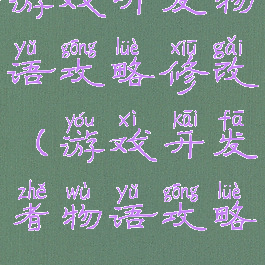 游戏开发物
yǔ gōng lüè xiū gǎi
语攻略修改
yóu xì kāi fā
(游戏开发
zhě wù yǔ gōng lüè
者物语攻略